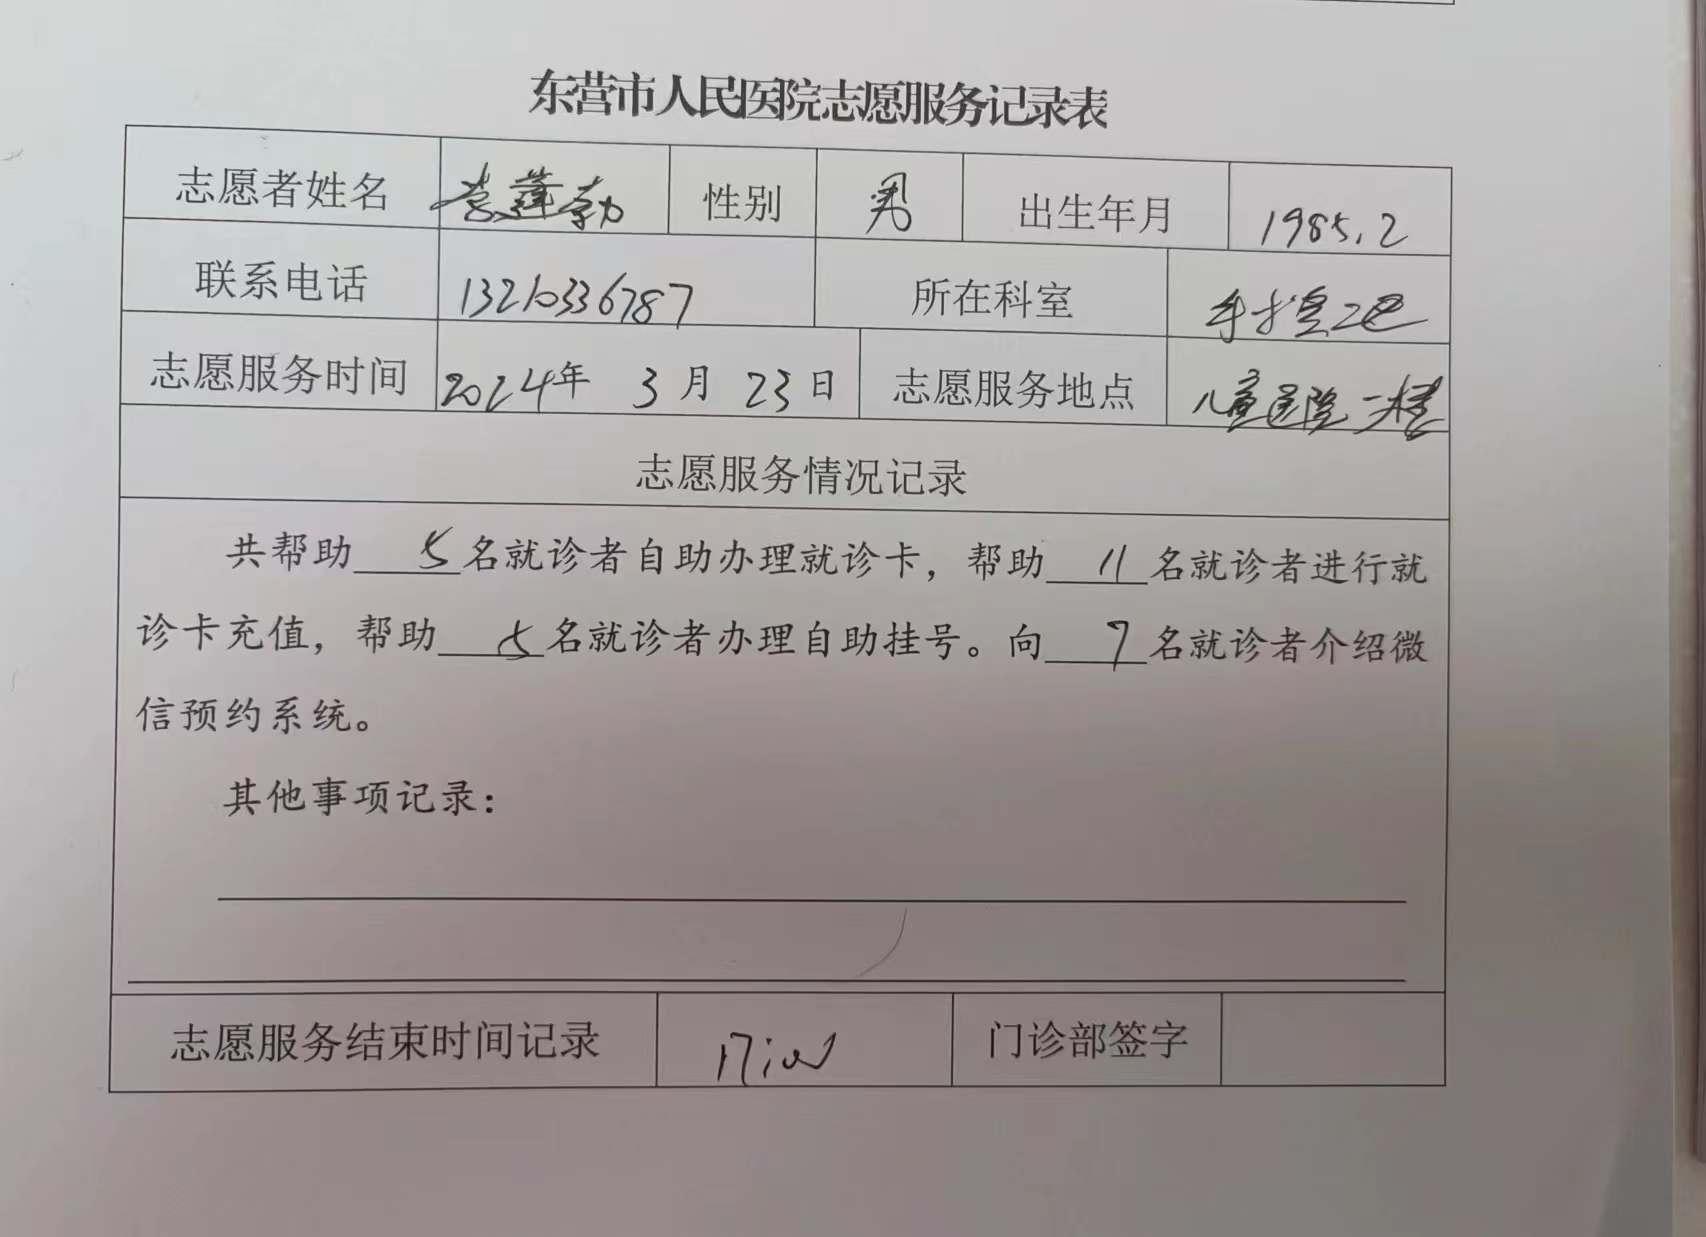 东营市人民医院志愿服务记录表
志愿者姓名 性别 男 出生年月 1985.2
联系电话 13210336787 所在科室 手术室二区
志愿服务时间 2024年 3月 23日 志愿服务地点 儿童医院二楼
志愿服务情况记录
共帮助 5 名就诊者自助办理就诊卡，帮助 11 名就诊者进行就
诊卡充值，帮助 5 名就诊者办理自助挂号。向 7 名就诊者介绍微
信预约系统。
其他事项记录：
志愿服务结束时间记录 17:00 门诊部签字